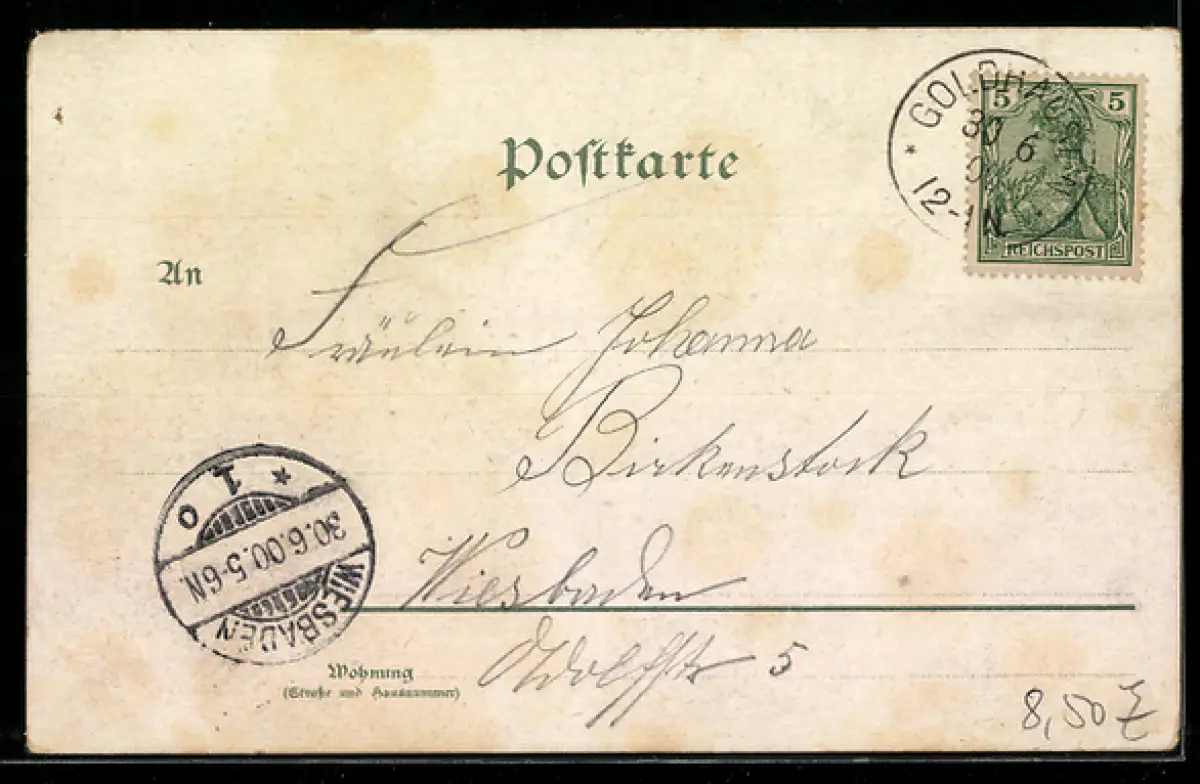 Postkarte
* GOLDHAUSEN
30 6
12-1N
5 5
REICHSPOST
An
Fräulein Johanna
Birkenstock
Wiesbaden
Adolfstr 5
Wohnung
(Straße und Hausnummer)
* 1 o
30.6.00.5-6N.
WIESBADEN
8,50